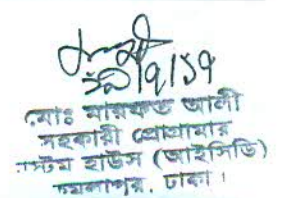 ২৯/৭/১৭
মোঃ মারফত আলী
সহকারী প্রোগ্রামার
কাস্টম হাউস (আইসিডি)
কমলাপুর, ঢাকা।